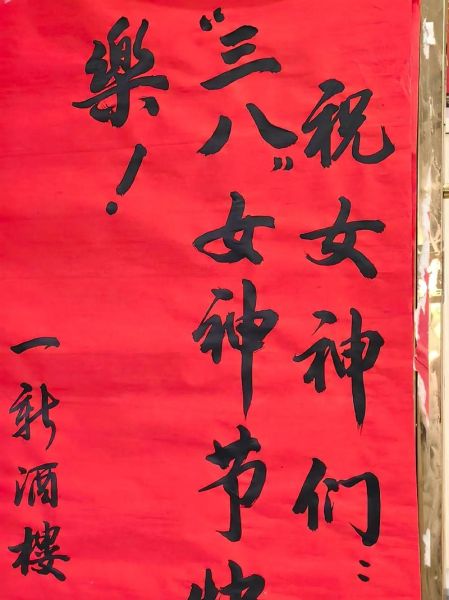 祝女神们：
“三八”女神节快
樂！
一新酒樓